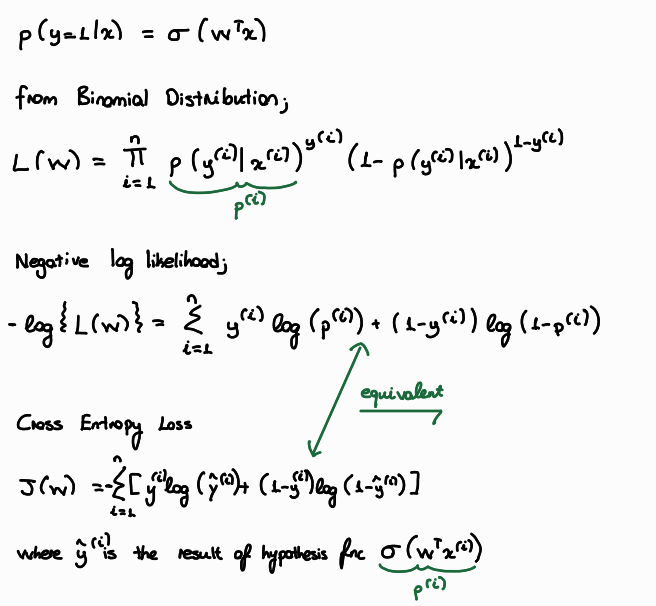 p(y=1|x) = σ(wᵀx)
from Binomial Distribution;
L(w) = ∏ᵢ₌₁ⁿ p(y⁽ⁱ⁾|x⁽ⁱ⁾)^y⁽ⁱ⁾ (1- p(y⁽ⁱ⁾|x⁽ⁱ⁾)^1-y⁽ⁱ⁾
p⁽ⁱ⁾
Negative log likelihood;
- log{L(w)} = Σᵢ₌₁ⁿ y⁽ⁱ⁾ log(p⁽ⁱ⁾) + (1-y⁽ⁱ⁾) log(1-p⁽ⁱ⁾)
equivalent
Cross Entropy Loss
J(w) = -Σᵢ₌₁ⁿ [y⁽ⁱ⁾log(ŷ⁽ⁱ⁾)+ (1-y⁽ⁱ⁾)log(1-ŷ⁽ⁱ⁾)]
where ŷ⁽ⁱ⁾ is the result of hypothesis fnc σ(wᵀx⁽ⁱ⁾)
p⁽ⁱ⁾